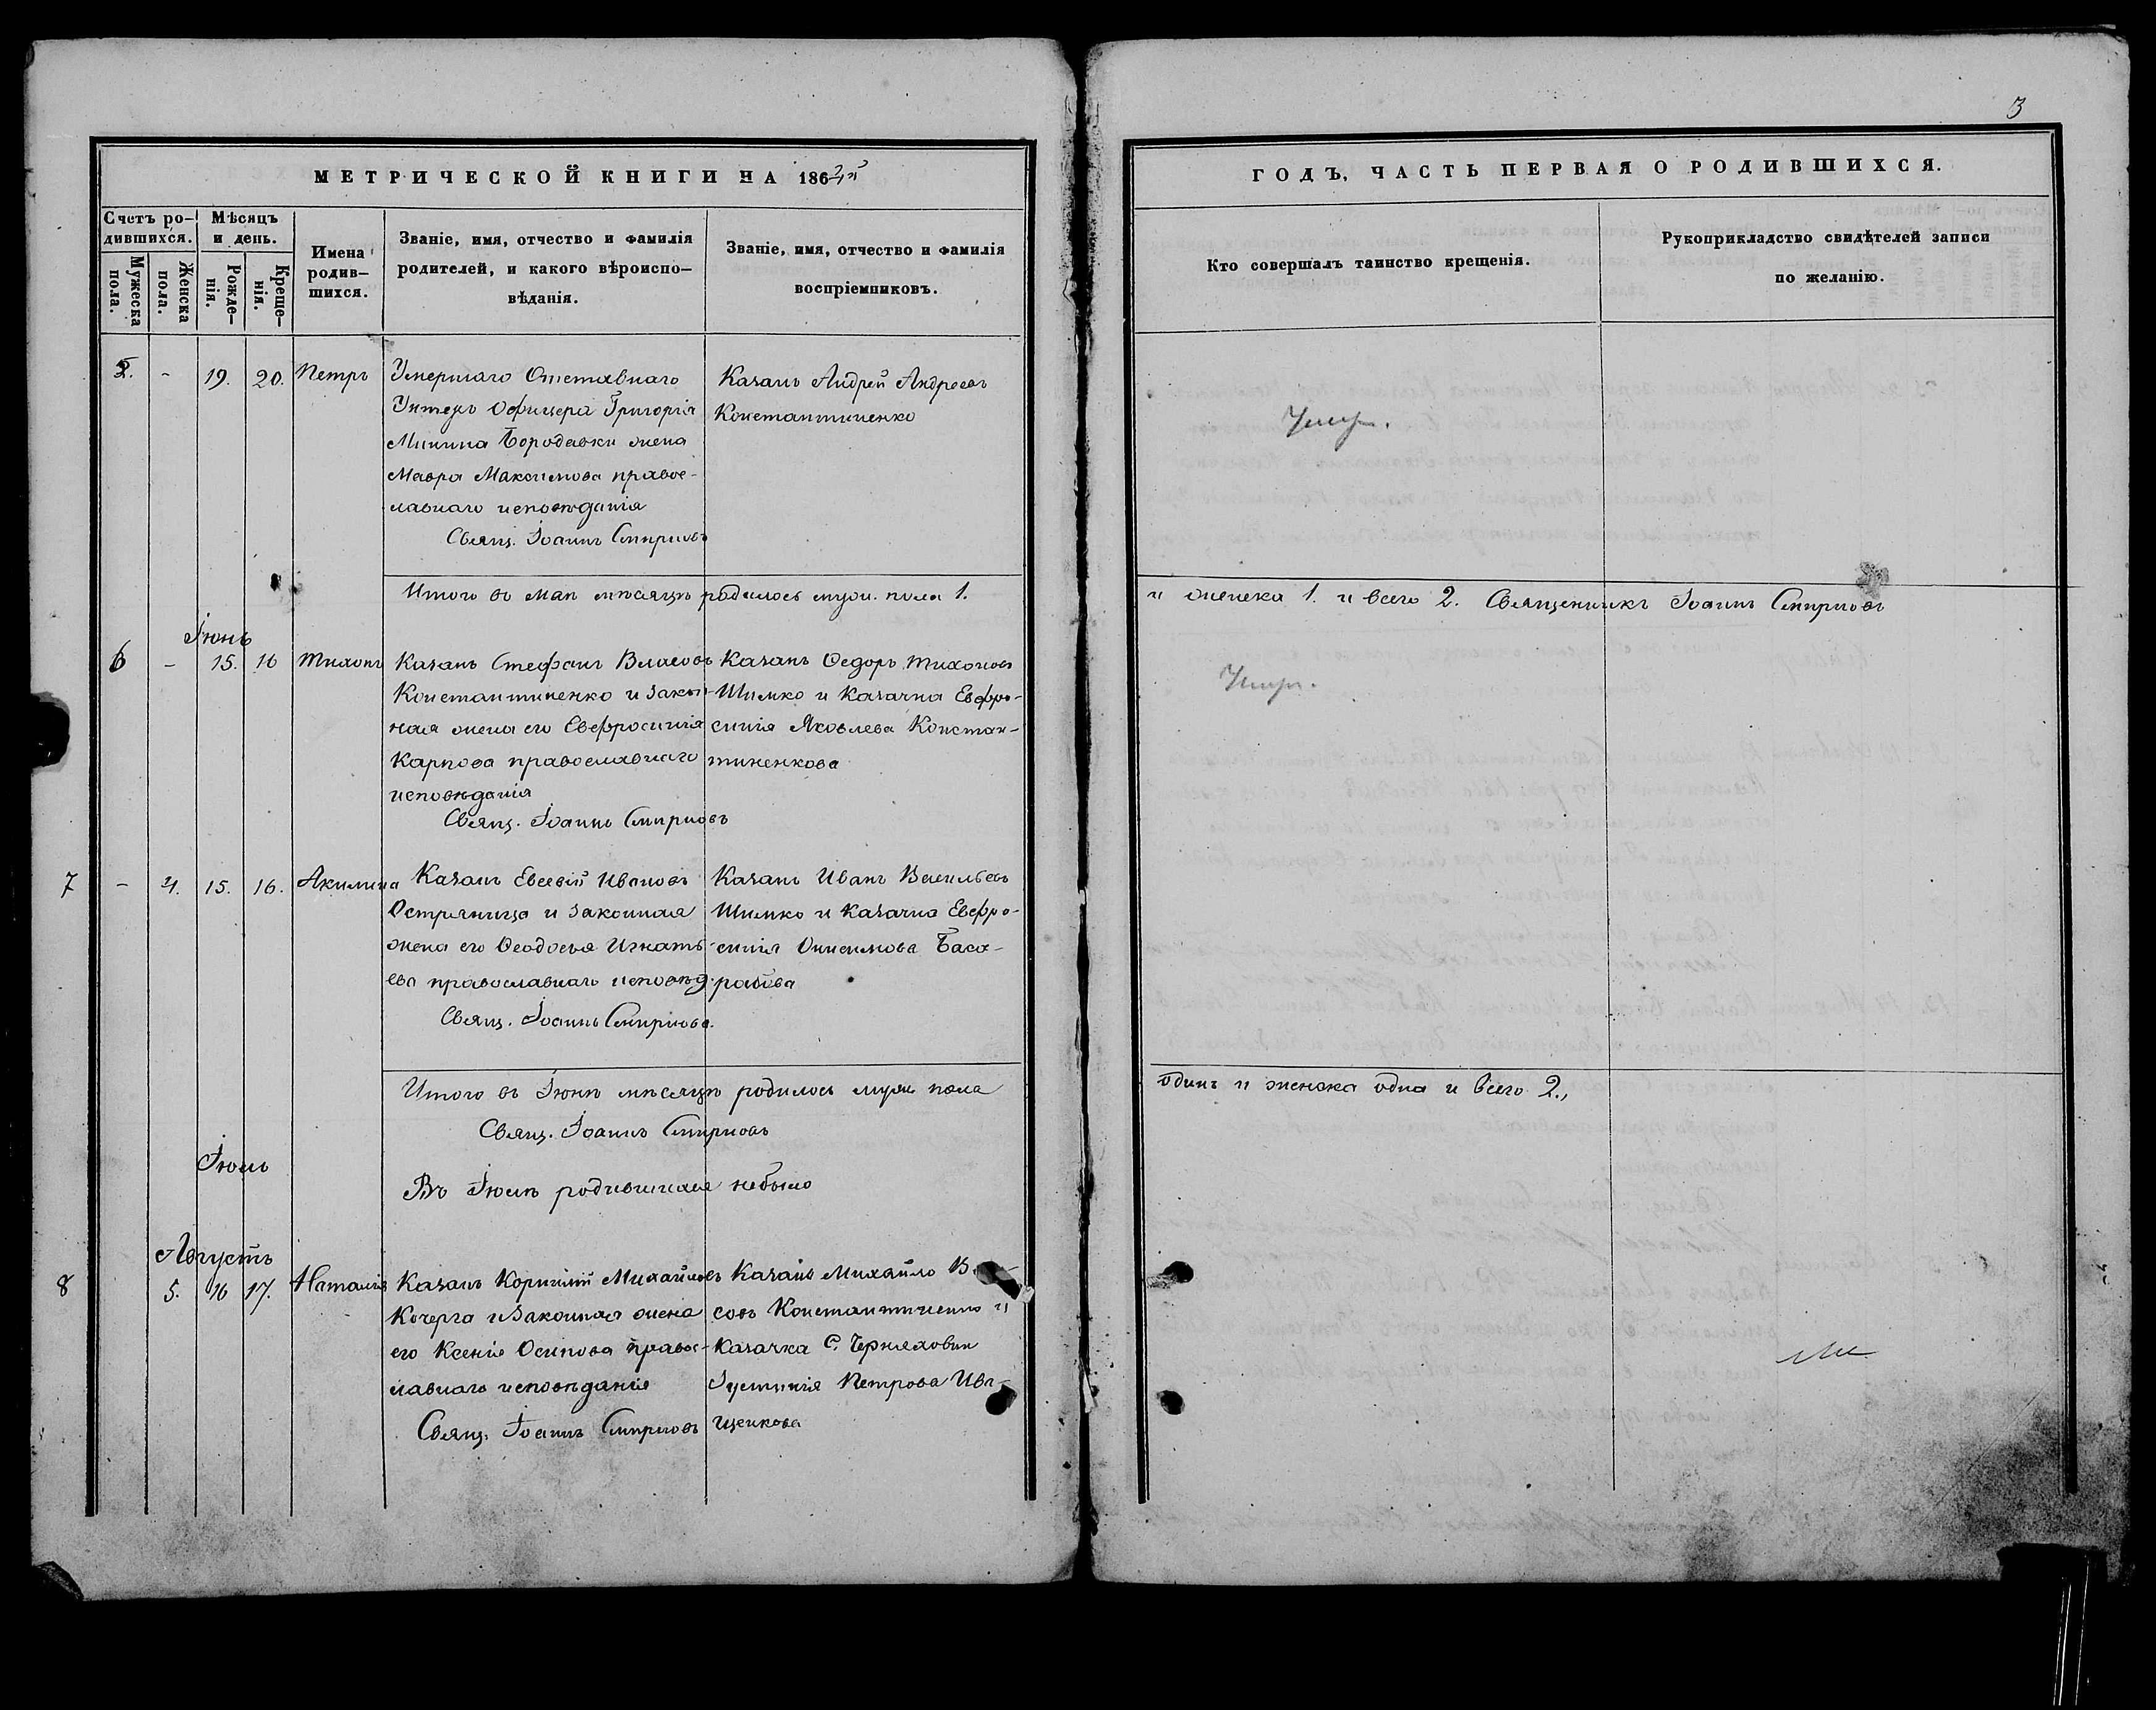 3
МЕТРИЧЕСКОЙ КНИГИ НА 186
ГОДЪ, ЧАСТЬ ПЕРВАЯ О РОДИВШИХСЯ.
Счетъ ро-
дившихся.
Мужеска
пола.
Женска
пола.
Мѣсяцъ
и день.
Рожде-
нія.
Креще-
нія.
Имена
родив-
шихся.
Званіе, имя, отчество и фамилія
родителей, и какого вѣроиспо-
вѣданія.
Званіе, имя, отчество и фамилія
воспріемниковъ.
Кто совершалъ таинство крещенія.
Рукоприкладство свидѣтелей записи
по желанію.
- 19. 20. Петръ
Умершаго Отставнаго
Унтеръ Офицера Григорія
Минина Бородавки жена
Мавра Максимова правос-
лавнаго исповѣданія
Свящ. Іоаннъ Смирновъ
Казакъ Андрей Андреевъ
Константиненко
Умер.
Итого въ маѣ мѣсяцѣ родилось муж. пола 1.
и женска 1. и всего 2. Священникъ Іоаннъ Смирновъ
Іюнь
6 - 15. 16 Тихонъ
Казакъ Стефанъ Власовъ
Константиненко и закон-
ная жена его Евфросинія
Карпова православнаго
исповѣданія
Свящ. Іоаннъ Смирновъ
Казакъ Ѳедоръ Тихоновъ
Шимко и Казачка Евфро-
синія Яковлева Констан-
тиненкова
Умер.
7 - 4. 15. 16. Акилина
Казакъ Евсевій Ивановъ
Остряница и законная
жена его Ѳеодосья Игнать-
ева православнаго исповѣд.
Свящ. Іоаннъ Смирновъ.
Казакъ Иванъ Васильевъ
Шимко и Казачка Евфро-
синія Онисимова Баса-
рабова
Итого въ Іюнѣ мѣсяцѣ родилось муж пола
одинъ и женска одна и всего 2.,
Свящ. Іоаннъ Смирновъ
Іюль
Въ Іюлѣ родившихся небыло
Августъ
8 5. 16 17. Наталія
Казакъ Корнилій Михайловъ
Кочерга и Законная жена
его Ксенія Осипова правос-
лавнаго исповѣданія
Свящ. Іоаннъ Смирновъ
Казакъ Михайло
совъ Константиненко и
Казачка С. Черняховки
Іустинія Петрова Ива-
щенкова